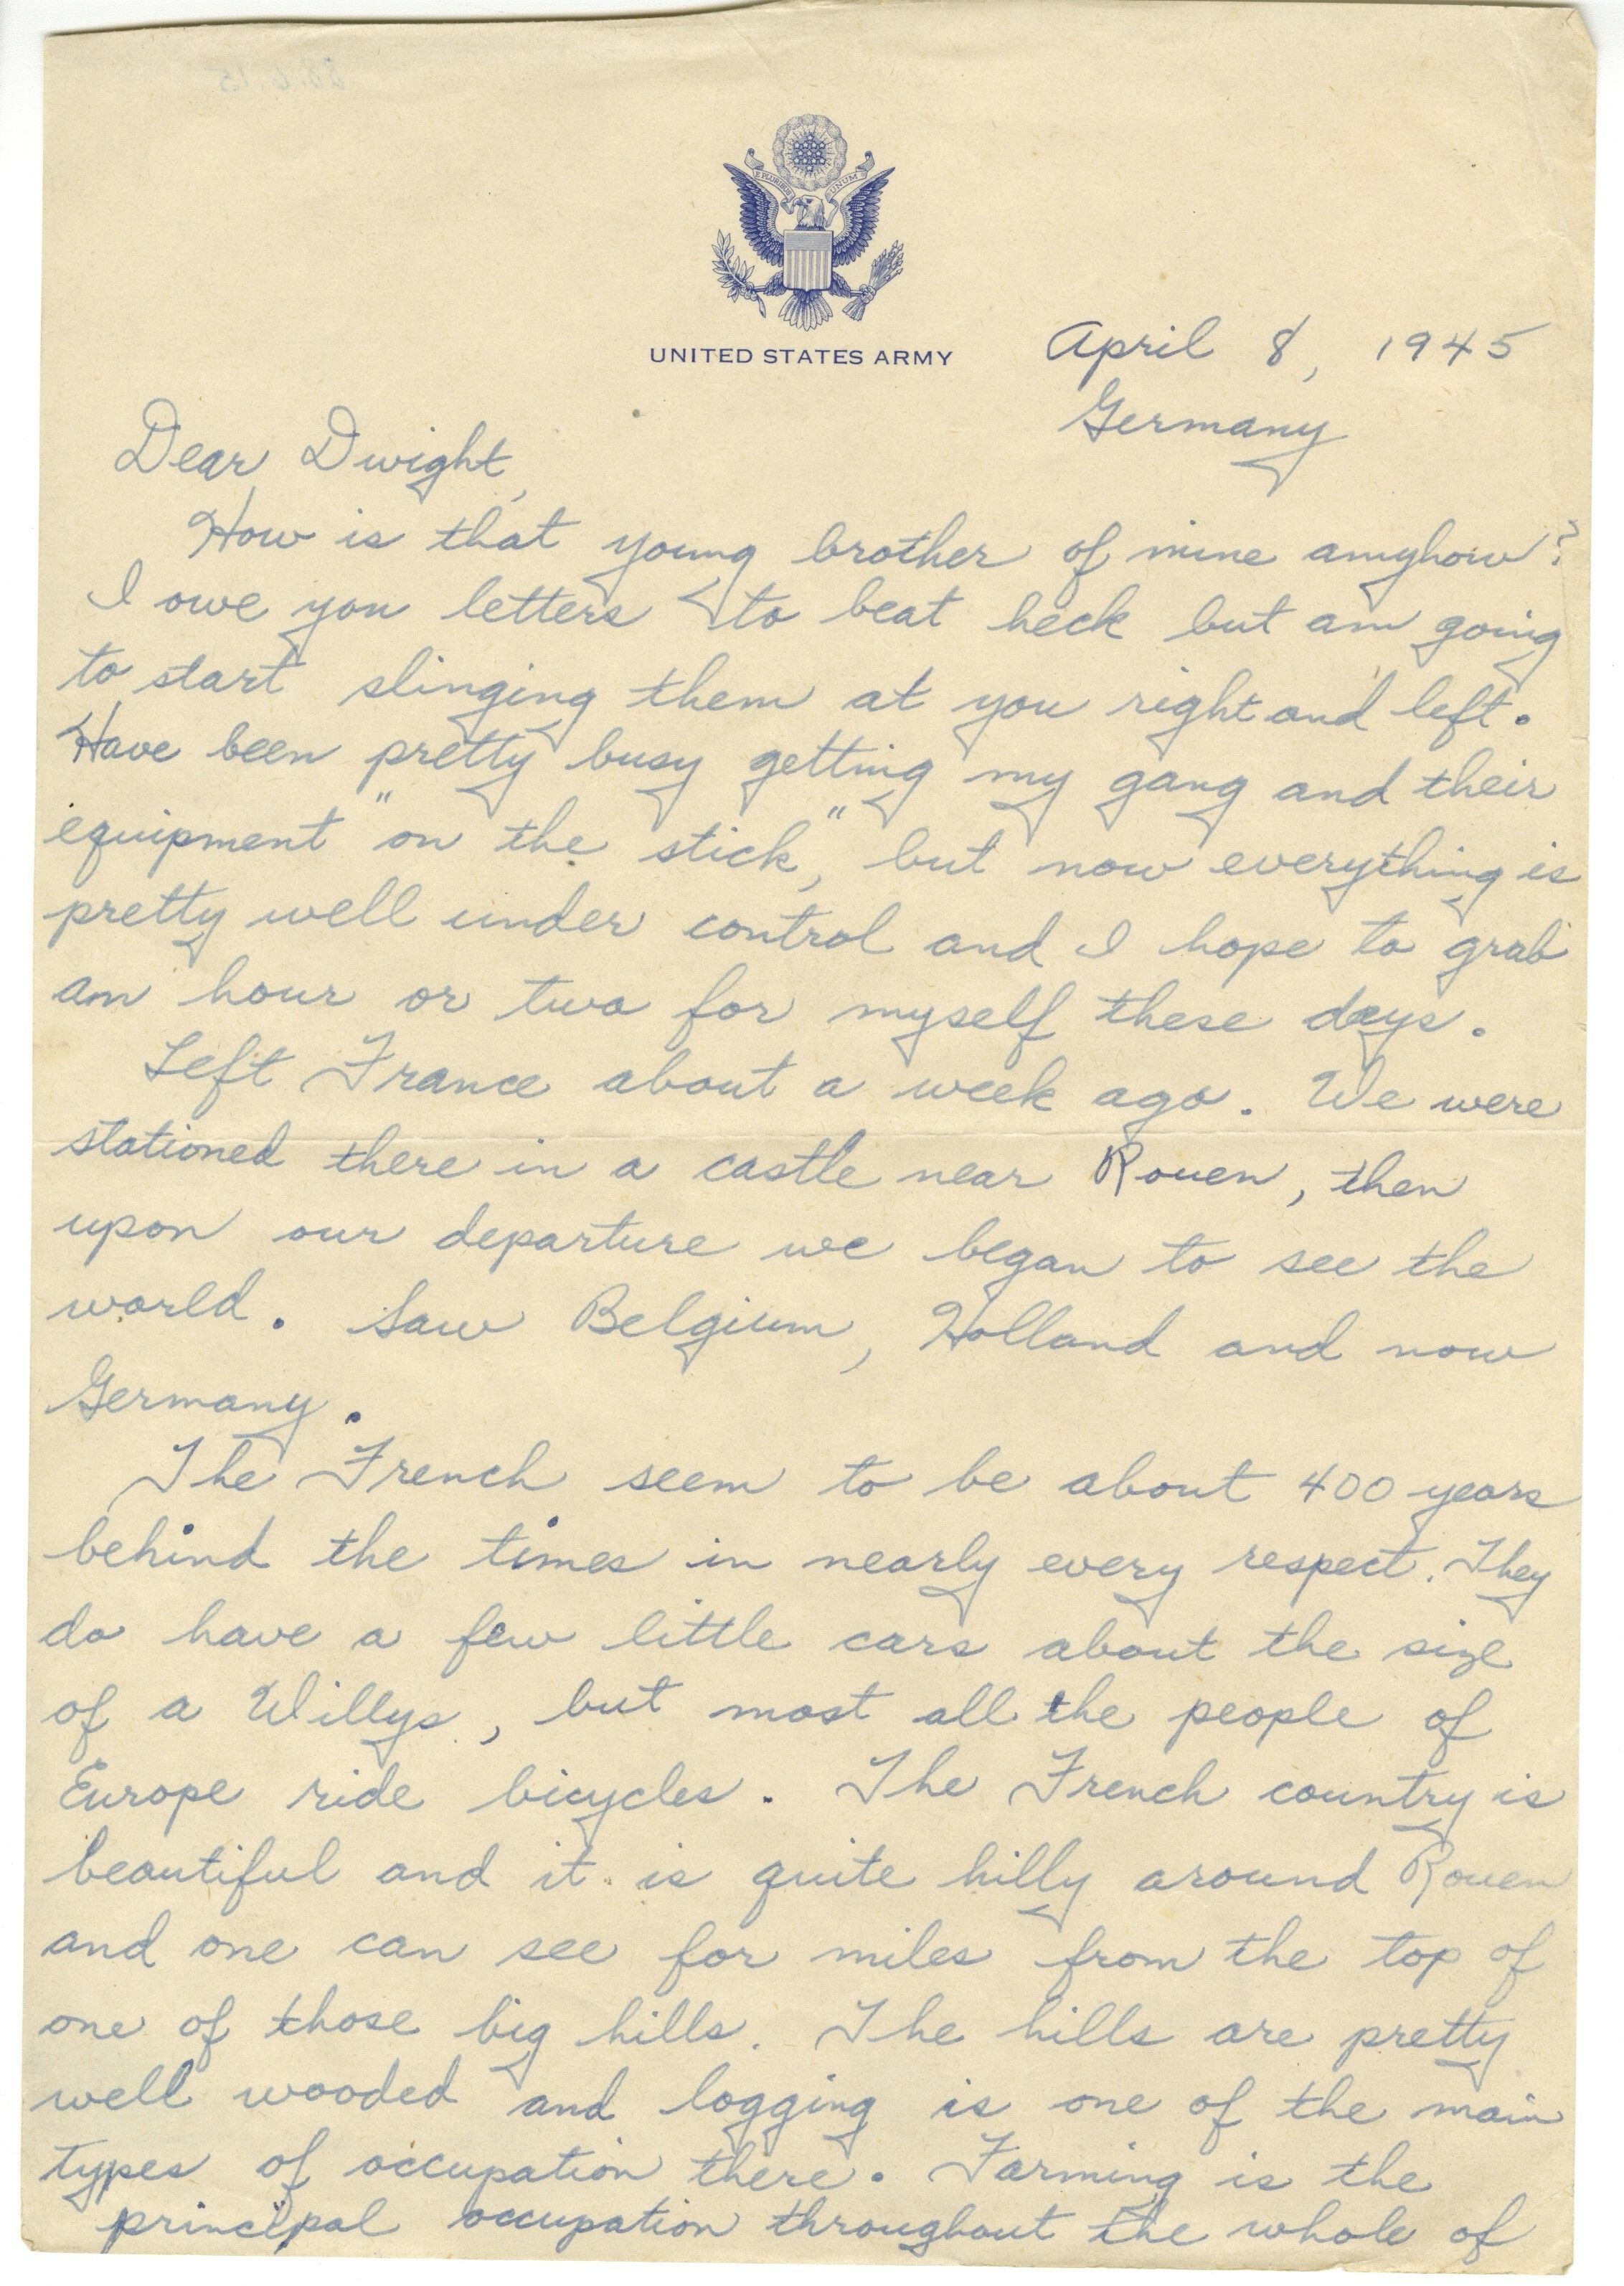 E PLURIBUS UNUM
UNITED STATES ARMY
April 8, 1945
Germany
Dear Dwight,
How is that young brother of mine anyhow?
I owe you letters to beat heck but am going
to start slinging them at you right and left.
Have been pretty busy getting my gang and their
equipment "on the stick," but now everything is
pretty well under control and I hope to grab
an hour or two for myself these days.
Left France about a week ago. We were
stationed there in a castle near Rouen, then
upon our departure we began to see the
world. Saw Belgium, Holland and now
Germany.
The French seem to be about 400 years
behind the times in nearly every respect. They
do have a few little cars about the size
of a Willys, but most all the people of
Europe ride bicycles. The French country is
beautiful and it is quite hilly around Rouen
and one can see for miles from the top of
one of those big hills. The hills are pretty
well wooded and logging is one of the main
types of occupation there. Farming is the
principal occupation throughout the whole of